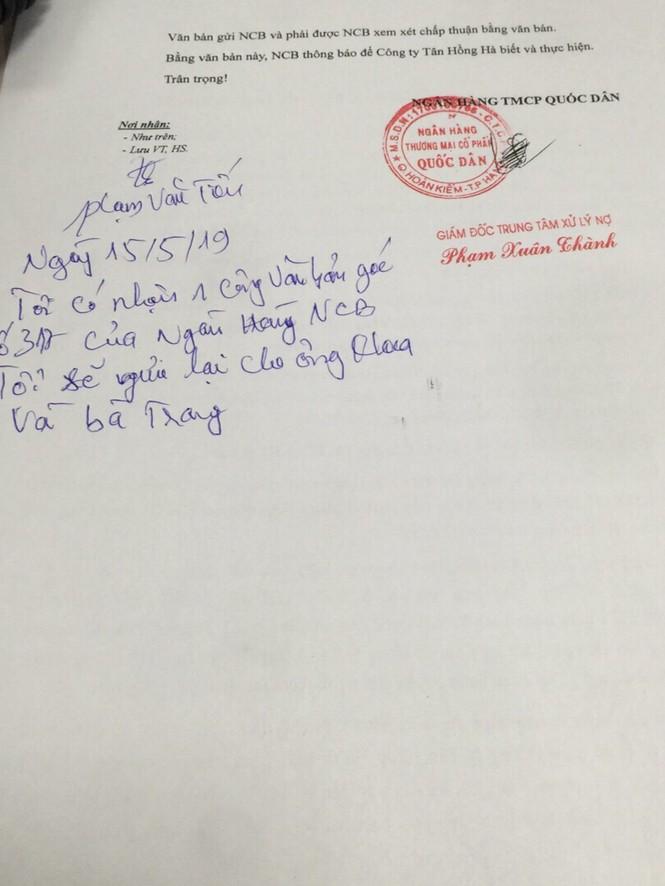 Văn bản gửi NCB và phải được NCB xem xét chấp thuận bằng văn bản.
Bằng văn bản này, NCB thông báo để Công ty Tân Hồng Hà biết và thực hiện.
Trân trọng!
NGÂN HÀNG TMCP QUỐC DÂN
Nơi nhận:
- Như trên;
- Lưu VT, HS.
NGÂN HÀNG
THƯƠNG MẠI CỔ PHẦN
QUỐC DÂN
Q HOÀN KIẾM-T.P HÀ
GIÁM ĐỐC TRUNG TÂM XỬ LÝ NỢ
Phạm Xuân Thành
phạm Văn Tốn
Ngày 15/5/19
Tôi có nhận 1 công văn bản gốc
của Ngân Hàng NCB
Tôi sẽ gửi lại cho ông
và bà Trang